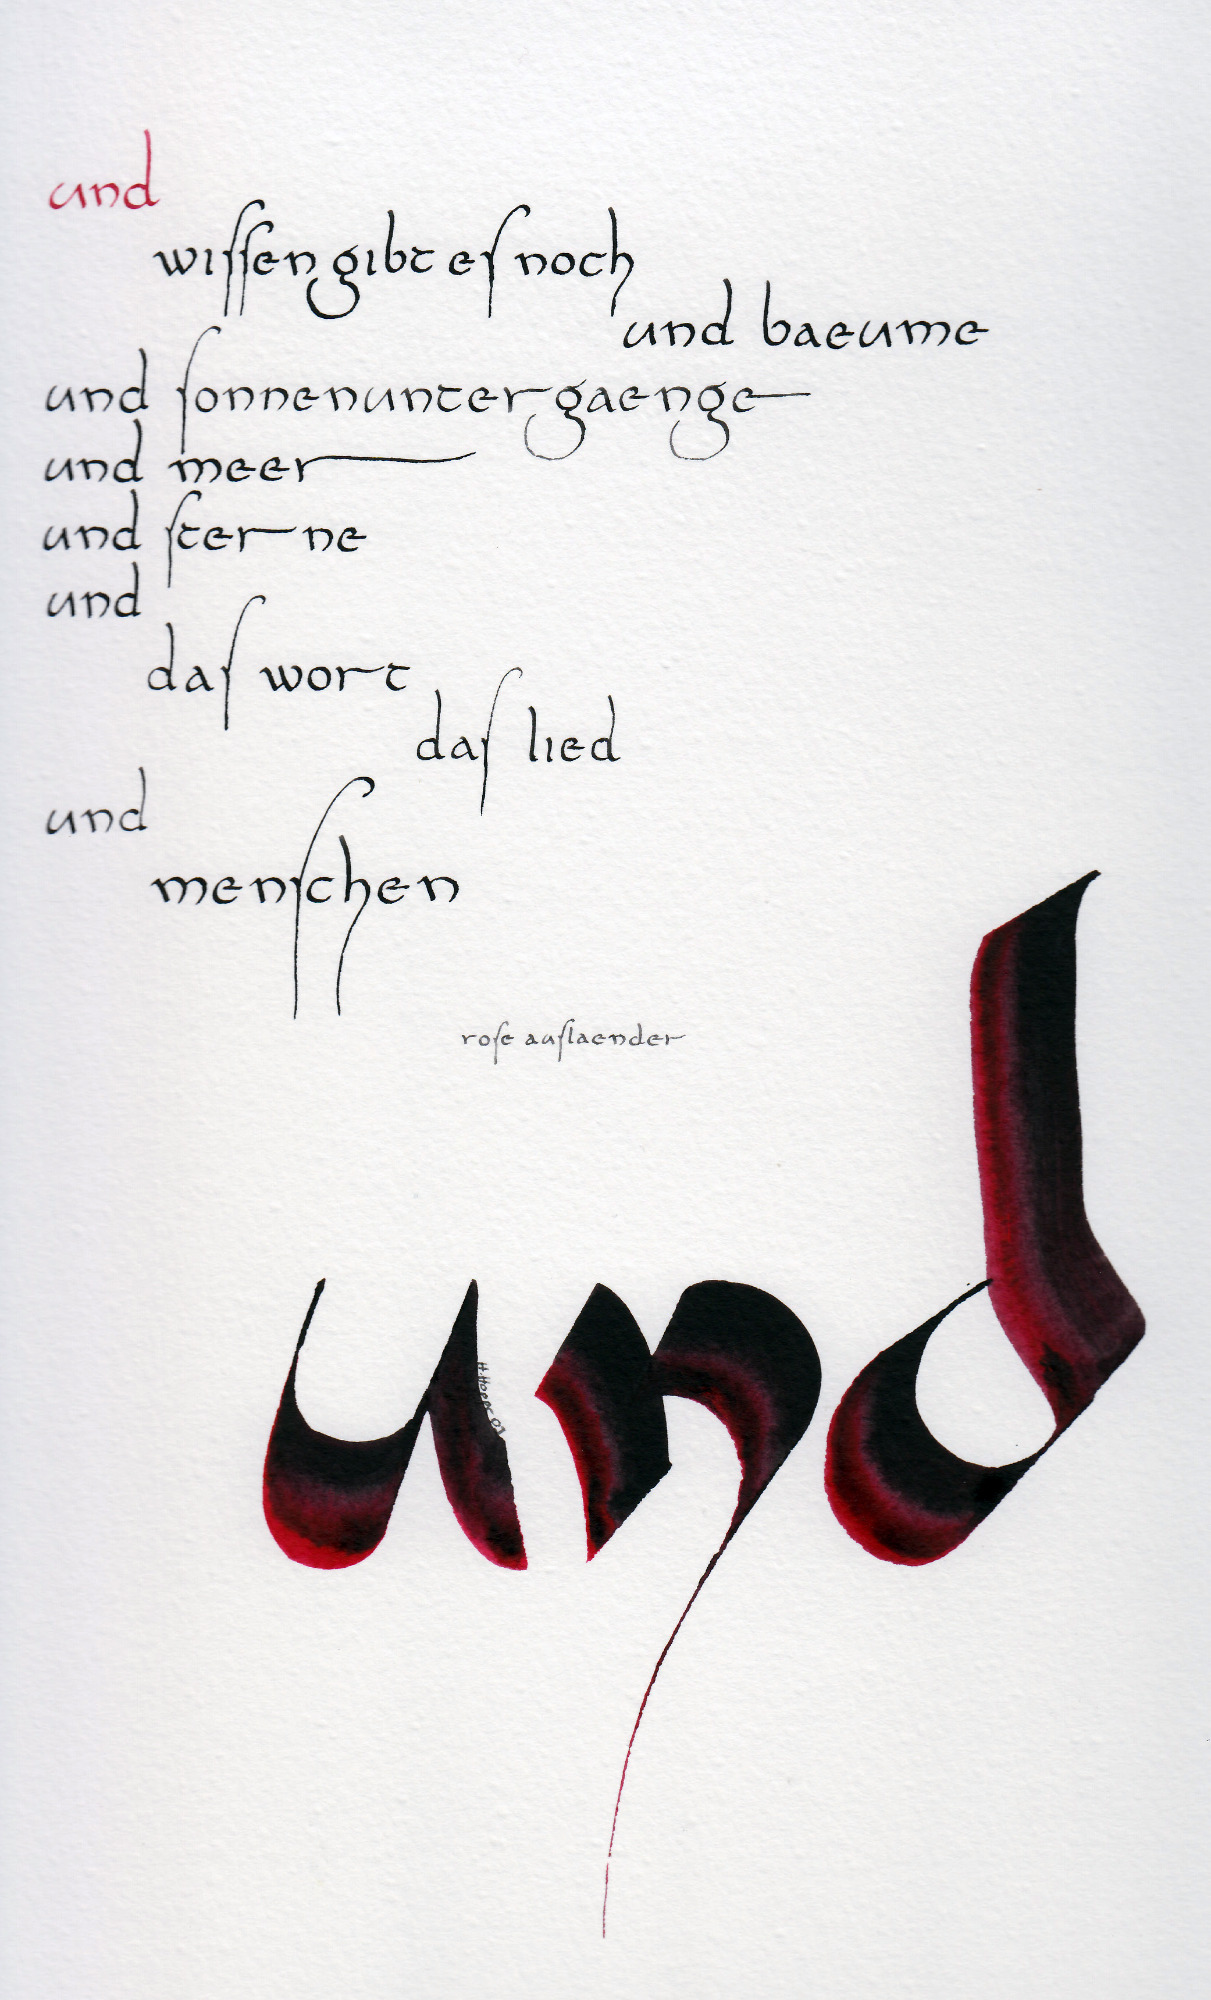 und
wiſſen gibt eſ noch
und baeume
und ſonnenuntergaenge
und meer
und ſterne
und
daſ wort
daſ lied
und
menſchen
roſe auſlaender
und